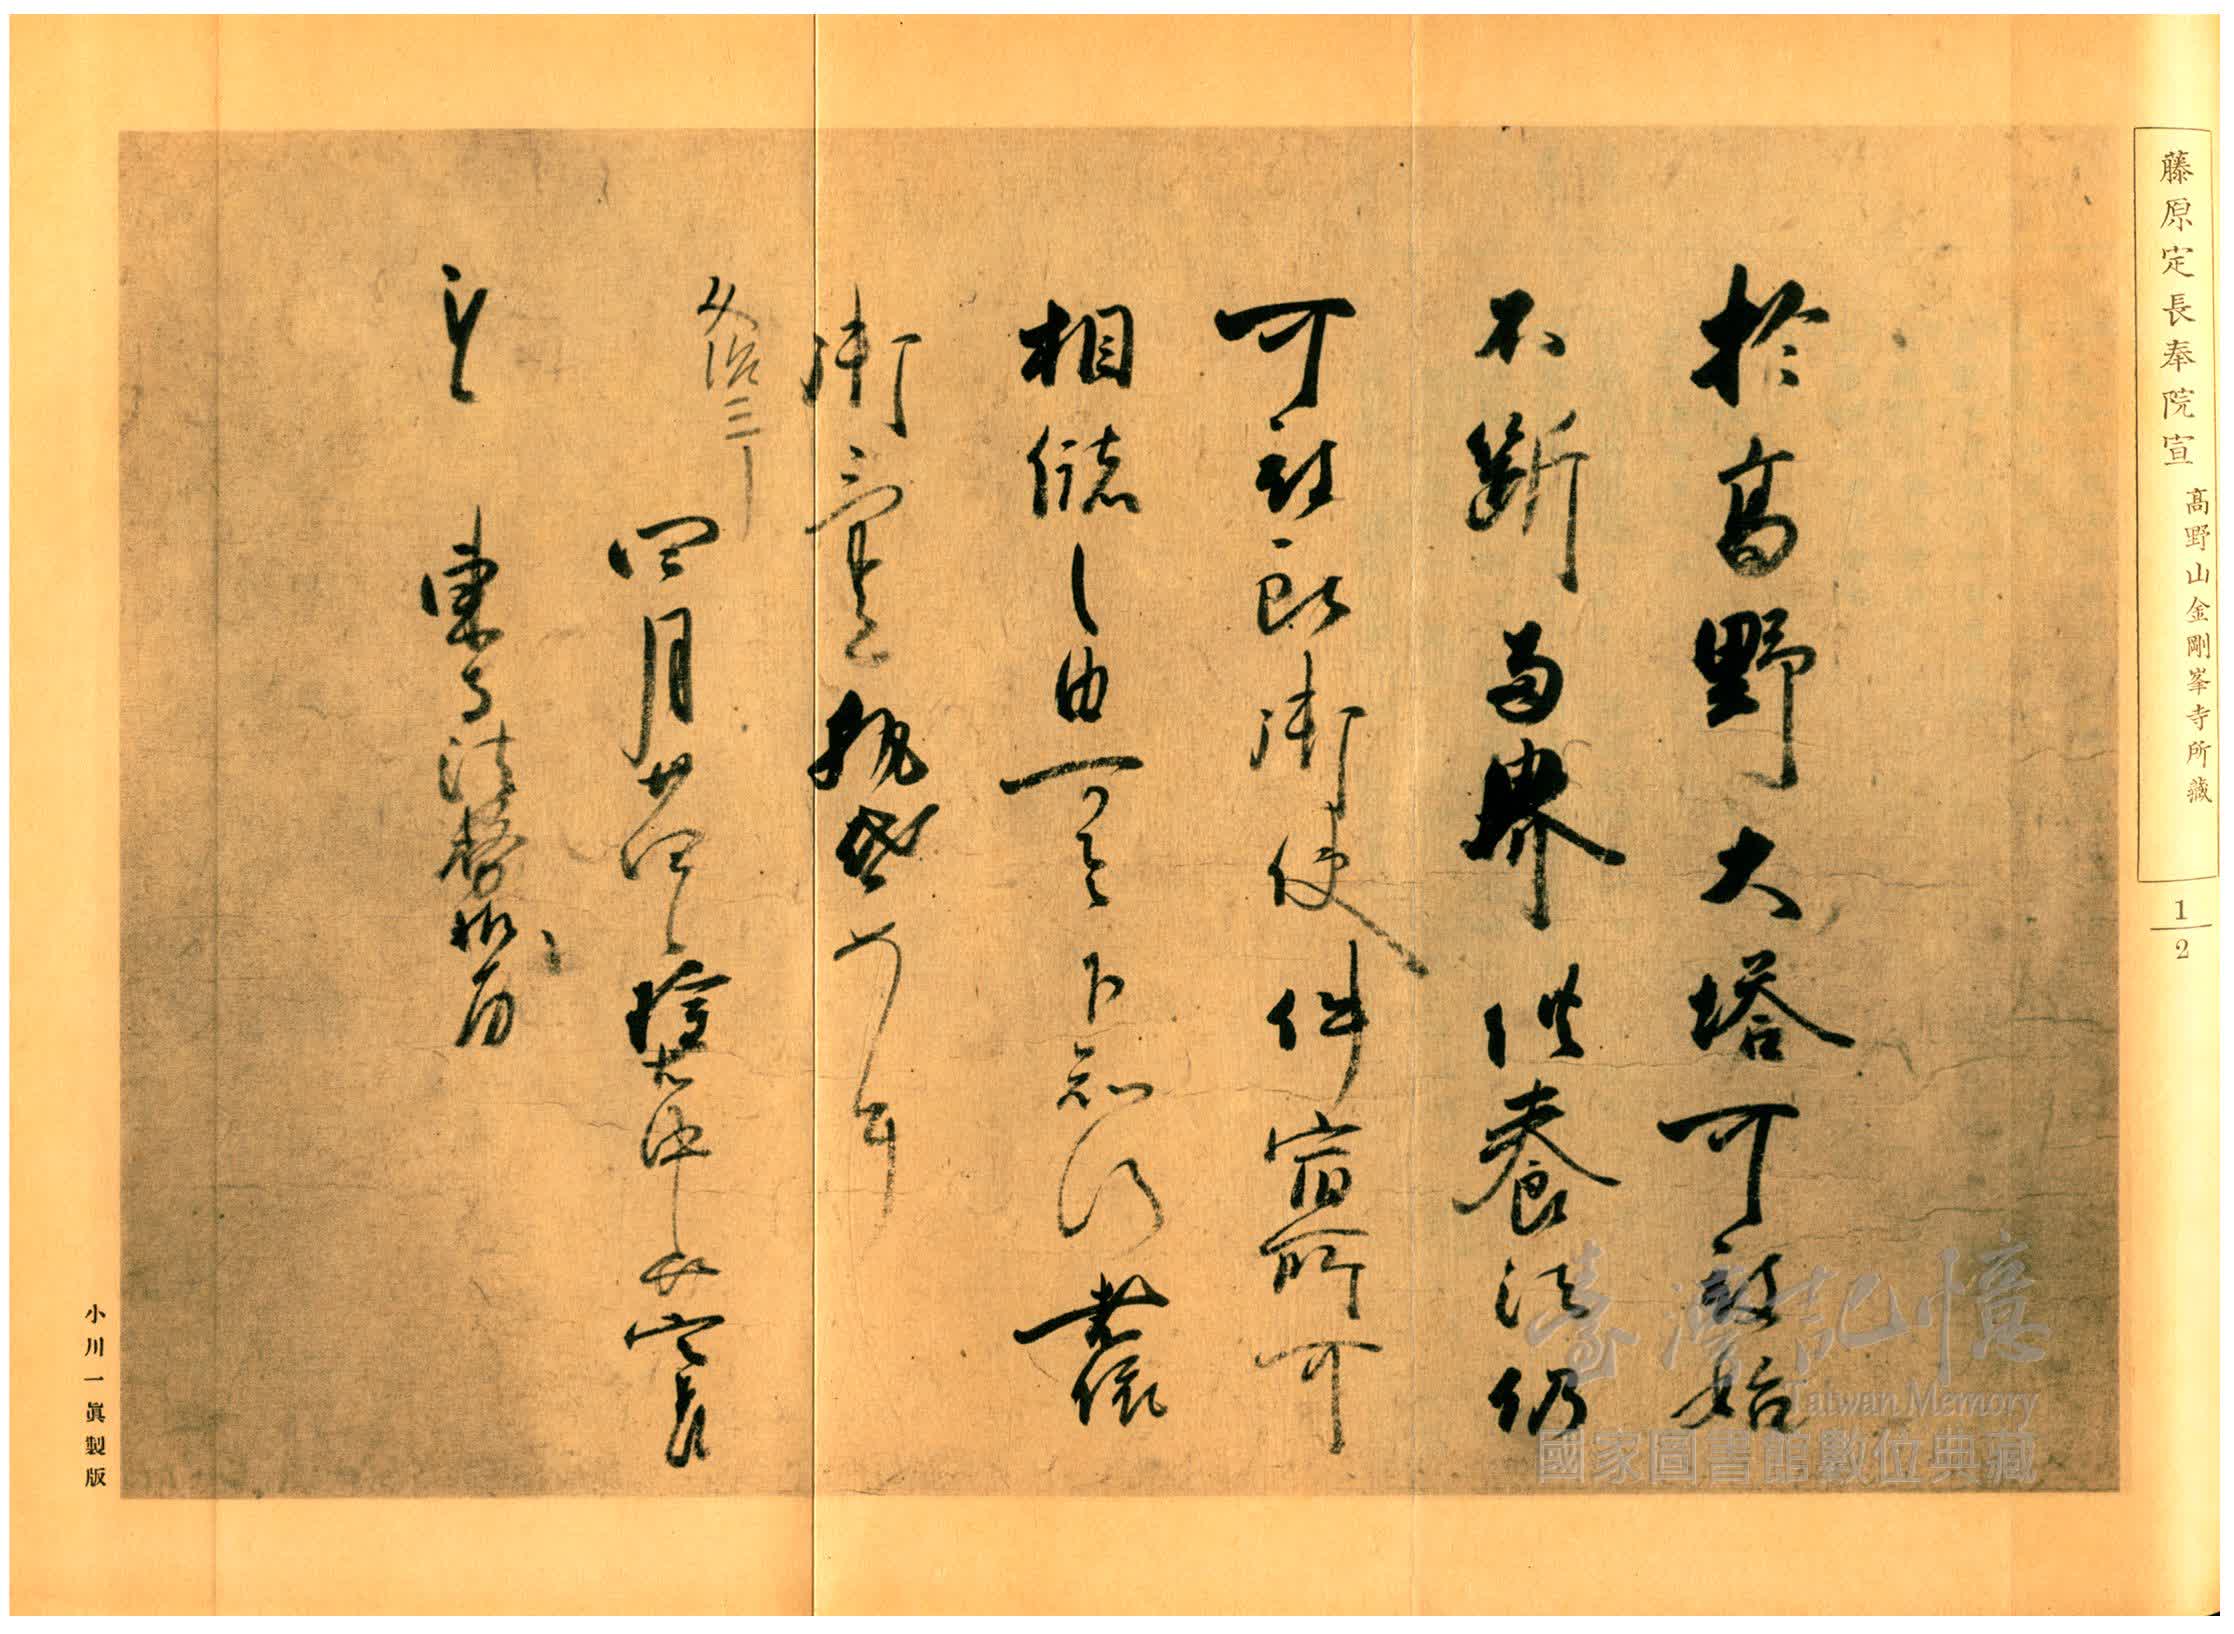 藤原定長奉院宣 高野山金剛峯寺所藏
1
2
於高野大塔可被始
不斷兩界供養法仍
可被献御使件宿所可
相儲之由可令下知給者依
御氣色執啓如件
文治三年
四月廿四日 権右中弁定長
謹上 東寺法務御房
小川一眞製版
臺灣記憶
Taiwan Memory
國家圖書館數位典藏